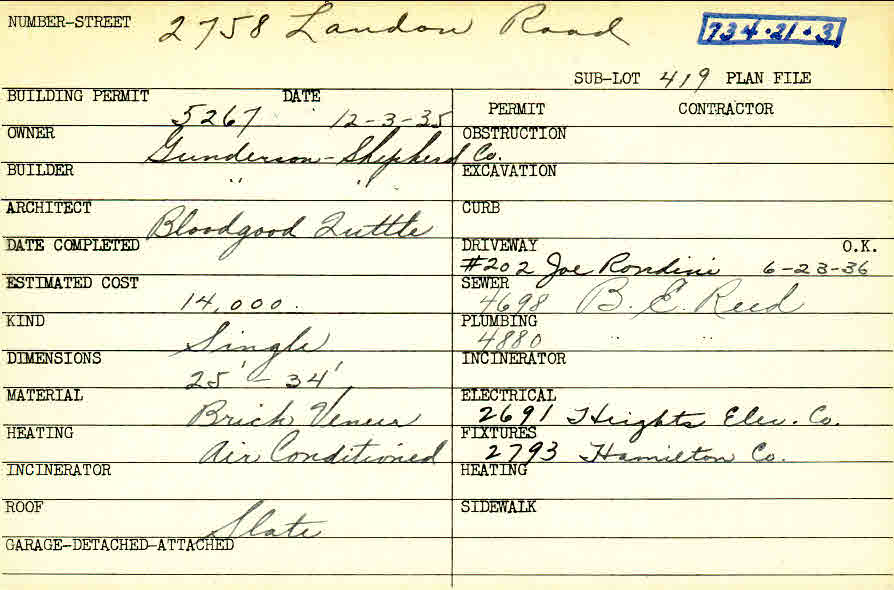 NUMBER-STREET 2758 Landon Road 734-21-3
SUB-LOT 419 PLAN FILE
BUILDING PERMIT DATE
5267 12-3-35
OWNER
Gunderson-Shepherd Co.
BUILDER
" "
ARCHITECT
Bloodgood Tuttle
DATE COMPLETED
ESTIMATED COST
14,000.
KIND
Single
DIMENSIONS
25' - 34'
MATERIAL
Brick Veneer
HEATING
Air Conditioned
INCINERATOR
ROOF
Slate
GARAGE-DETACHED-ATTACHED
PERMIT CONTRACTOR
OBSTRUCTION
EXCAVATION
CURB
DRIVEWAY O.K.
#202 Joe Rondini 6-23-36
SEWER
4698 B. E. Reed
PLUMBING
4880 " "
INCINERATOR
ELECTRICAL
2691 Heights Elec. Co.
FIXTURES
2793 Hamilton Co.
HEATING
SIDEWALK